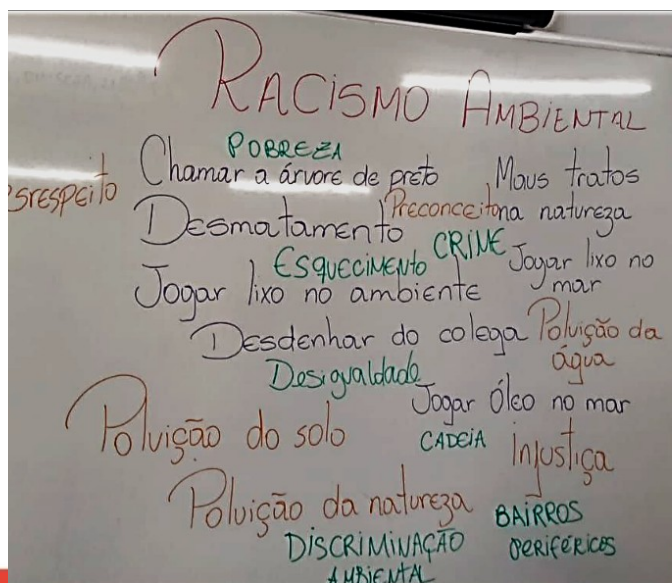 RACISMO AMBIENTAL
POBREZA
Chamar a árvore de preto
Maus tratos
na natureza
srespeito
Desmatamento
Preconceito
CRIME
ESQUECIMENTO
Jogar lixo no
mar
Jogar lixo no ambiente
Desdenhar do colega
Poluição da
água
Desigualdade
Jogar Óleo no mar
Poluição do solo
CADEIA
Injustiça
Poluição da natureza
BAIRROS
PERIFÉRICOS
DISCRIMINAÇÃO
AMBIENTAL